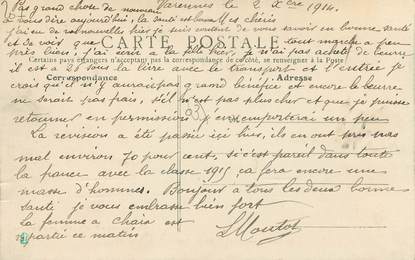 Pas grand chose de nouveau Varennes le 2 Xbre 1914.
à vous dire aujourd'hui, la santé est bonne Mes chéris
j'ai eu de vos nouvelles hier je suis content de vous savoir en bonne santé
et je vois que tout marche a peu
CARTE POSTALE
près bien, j'ai été à la
je n'ai pas acheté de beurre
Certains pays étrangers n'acceptant pas la correspondance de ce côté, se renseigner à la Poste
il est a 28 sous la livre avec le transport et l'entrée je
Correspondance Adresse
crois qu'il n'y aurait pas grand bénéfice et encore le beurre
ne serait pas frais, s'il n'est pas plus cher et que je puisse
retourner en permission j'en emporterai un peu
La revision a été passée ici hier, ils en ont pris pas
mal environ 70 pour cent, si c'est pareil dans toute
la france avec la classe 1915 ça fera encore une
masse d'hommes. Bonjour à tous les deux bonne
santé je vous embrasse bien fort
la femme a Chaix est
repartie ce matin